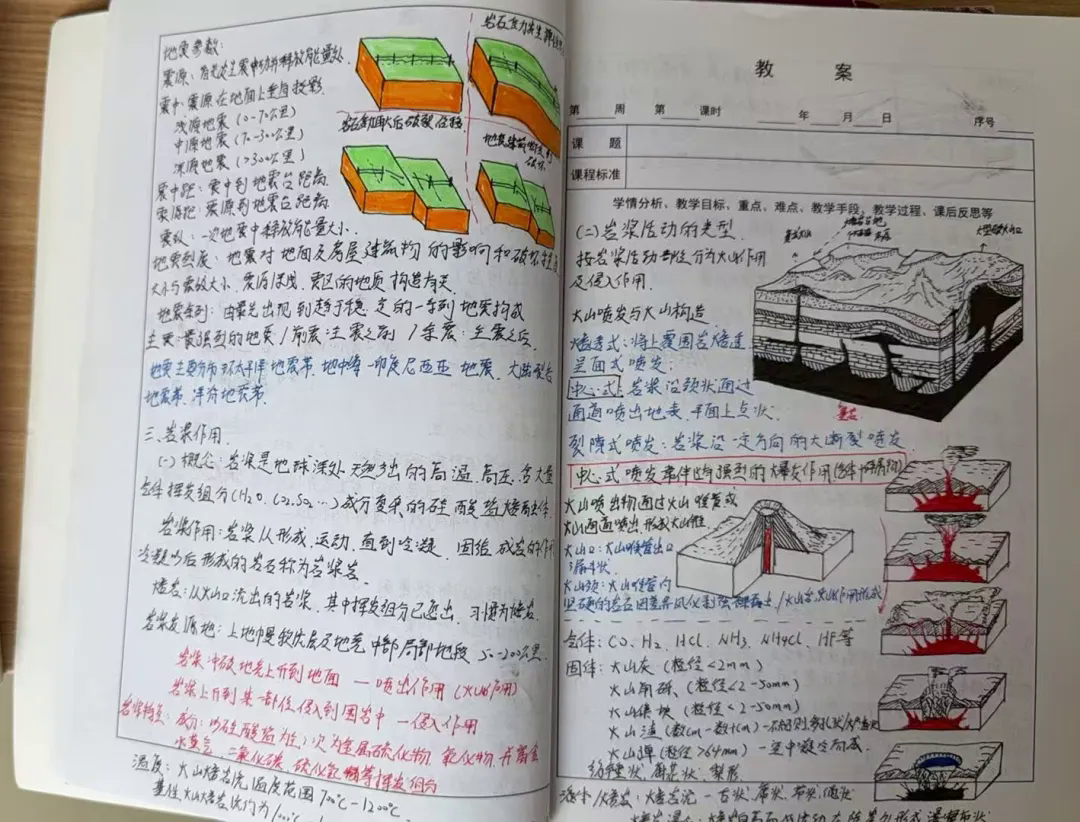 地震参数:
震源:首先发生震动并释放能量处.
震中:震源在地面上垂直投影
浅源地震(0-70公里)
中源地震(70-300公里)
深源地震(>300公里)
震中距:震中到地震台距离
震源距:震源到地震台距离
震级:一次地震中释放能量大小.
地震烈度:地震对地面及房屋建筑物的影响和破坏程度
大小与震级大小、震源深浅、震区的地质构造有关.
地震系列:由最先出现到趋于稳定的一系列地震构成
主震:最强烈的地震/前震:主震之前/余震:主震之后.
地震主要分布环太平洋地震带、地中海-印度尼西亚地震、大陆裂谷
地震带、洋脊地震带.
三、岩浆作用.
(一)概念:岩浆是地球深处天然产出的高温、高压、含大量
气体挥发组分(H2O、CO2、SO2...)成分复杂的硅酸盐熔融体.
岩浆作用:岩浆从形成、运动、直到冷凝、固结成岩的作用
冷凝以后形成的岩石称为岩浆岩.
熔岩:从火山口流出的岩浆,其中挥发组分已逸出,习惯为熔岩.
岩浆发源地:上地幔软流层及地壳中部局部地段 50-200公里.
岩浆冲破地壳上升到地面 — 喷出作用(火山作用)
岩浆上升到某一部位侵入到围岩中 — 侵入作用
成分:以硅酸盐为主,次为金属硫化物、氧化物,并富含
水蒸气、二氧化碳、硫化氢等挥发组分
温度:火山熔岩流温度范围700℃-1200℃
岩石受力发生弹性
教 案
第 周 第 课时 年 月 日 序号
课 题
课程标准
学情分析、教学目标、重点、难点、教学手段、教学过程、课后反思等
(二)岩浆活动的类型.
按岩浆活动部位分为火山作用
及侵入作用.
火山喷发与火山构造.
熔透式:将上覆围岩熔透
呈面式喷发.
中心式:岩浆沿颈状通过
通道喷出地表 平面上点状.
裂隙式喷发:岩浆沿一定方向的大断裂喷发
中心式喷发常伴随强烈的爆发作用
火山喷出物通过火山喉管或
火山通道喷出,形成火山锥
火山口:火山喉管出口
火山颈:火山喉管内
气体:CO、H2、HCl、NH3、NH4Cl、HF等
固体:火山灰(粒径<2mm)
火山角砾、(粒径<2-50mm)
火山集块(粒径<2-50mm)
火山渣(数cm-数十cm)
火山弹(粒径>64mm)—空中凝空而成
纺锤状、麻花状、梨形.